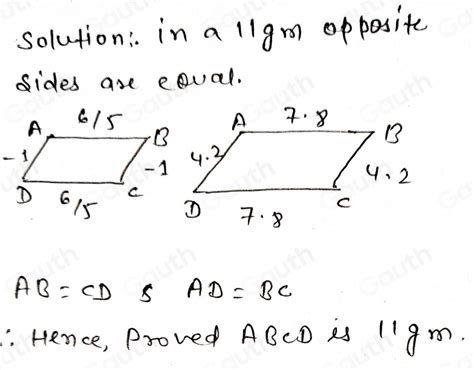 Solution:. in a 11gm opposite
sides are equal.
A 6/5 B
-1 -1
D 6/5 C
A 7.8 B
4.2 4.2
D 7.8 C
AB = CD & AD = BC
∴ Hence, Proved ABCD is 11gm.
Gauth